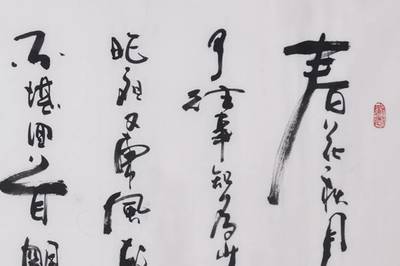 春花秋月
了往事知多少
昨夜又東風
不堪回首